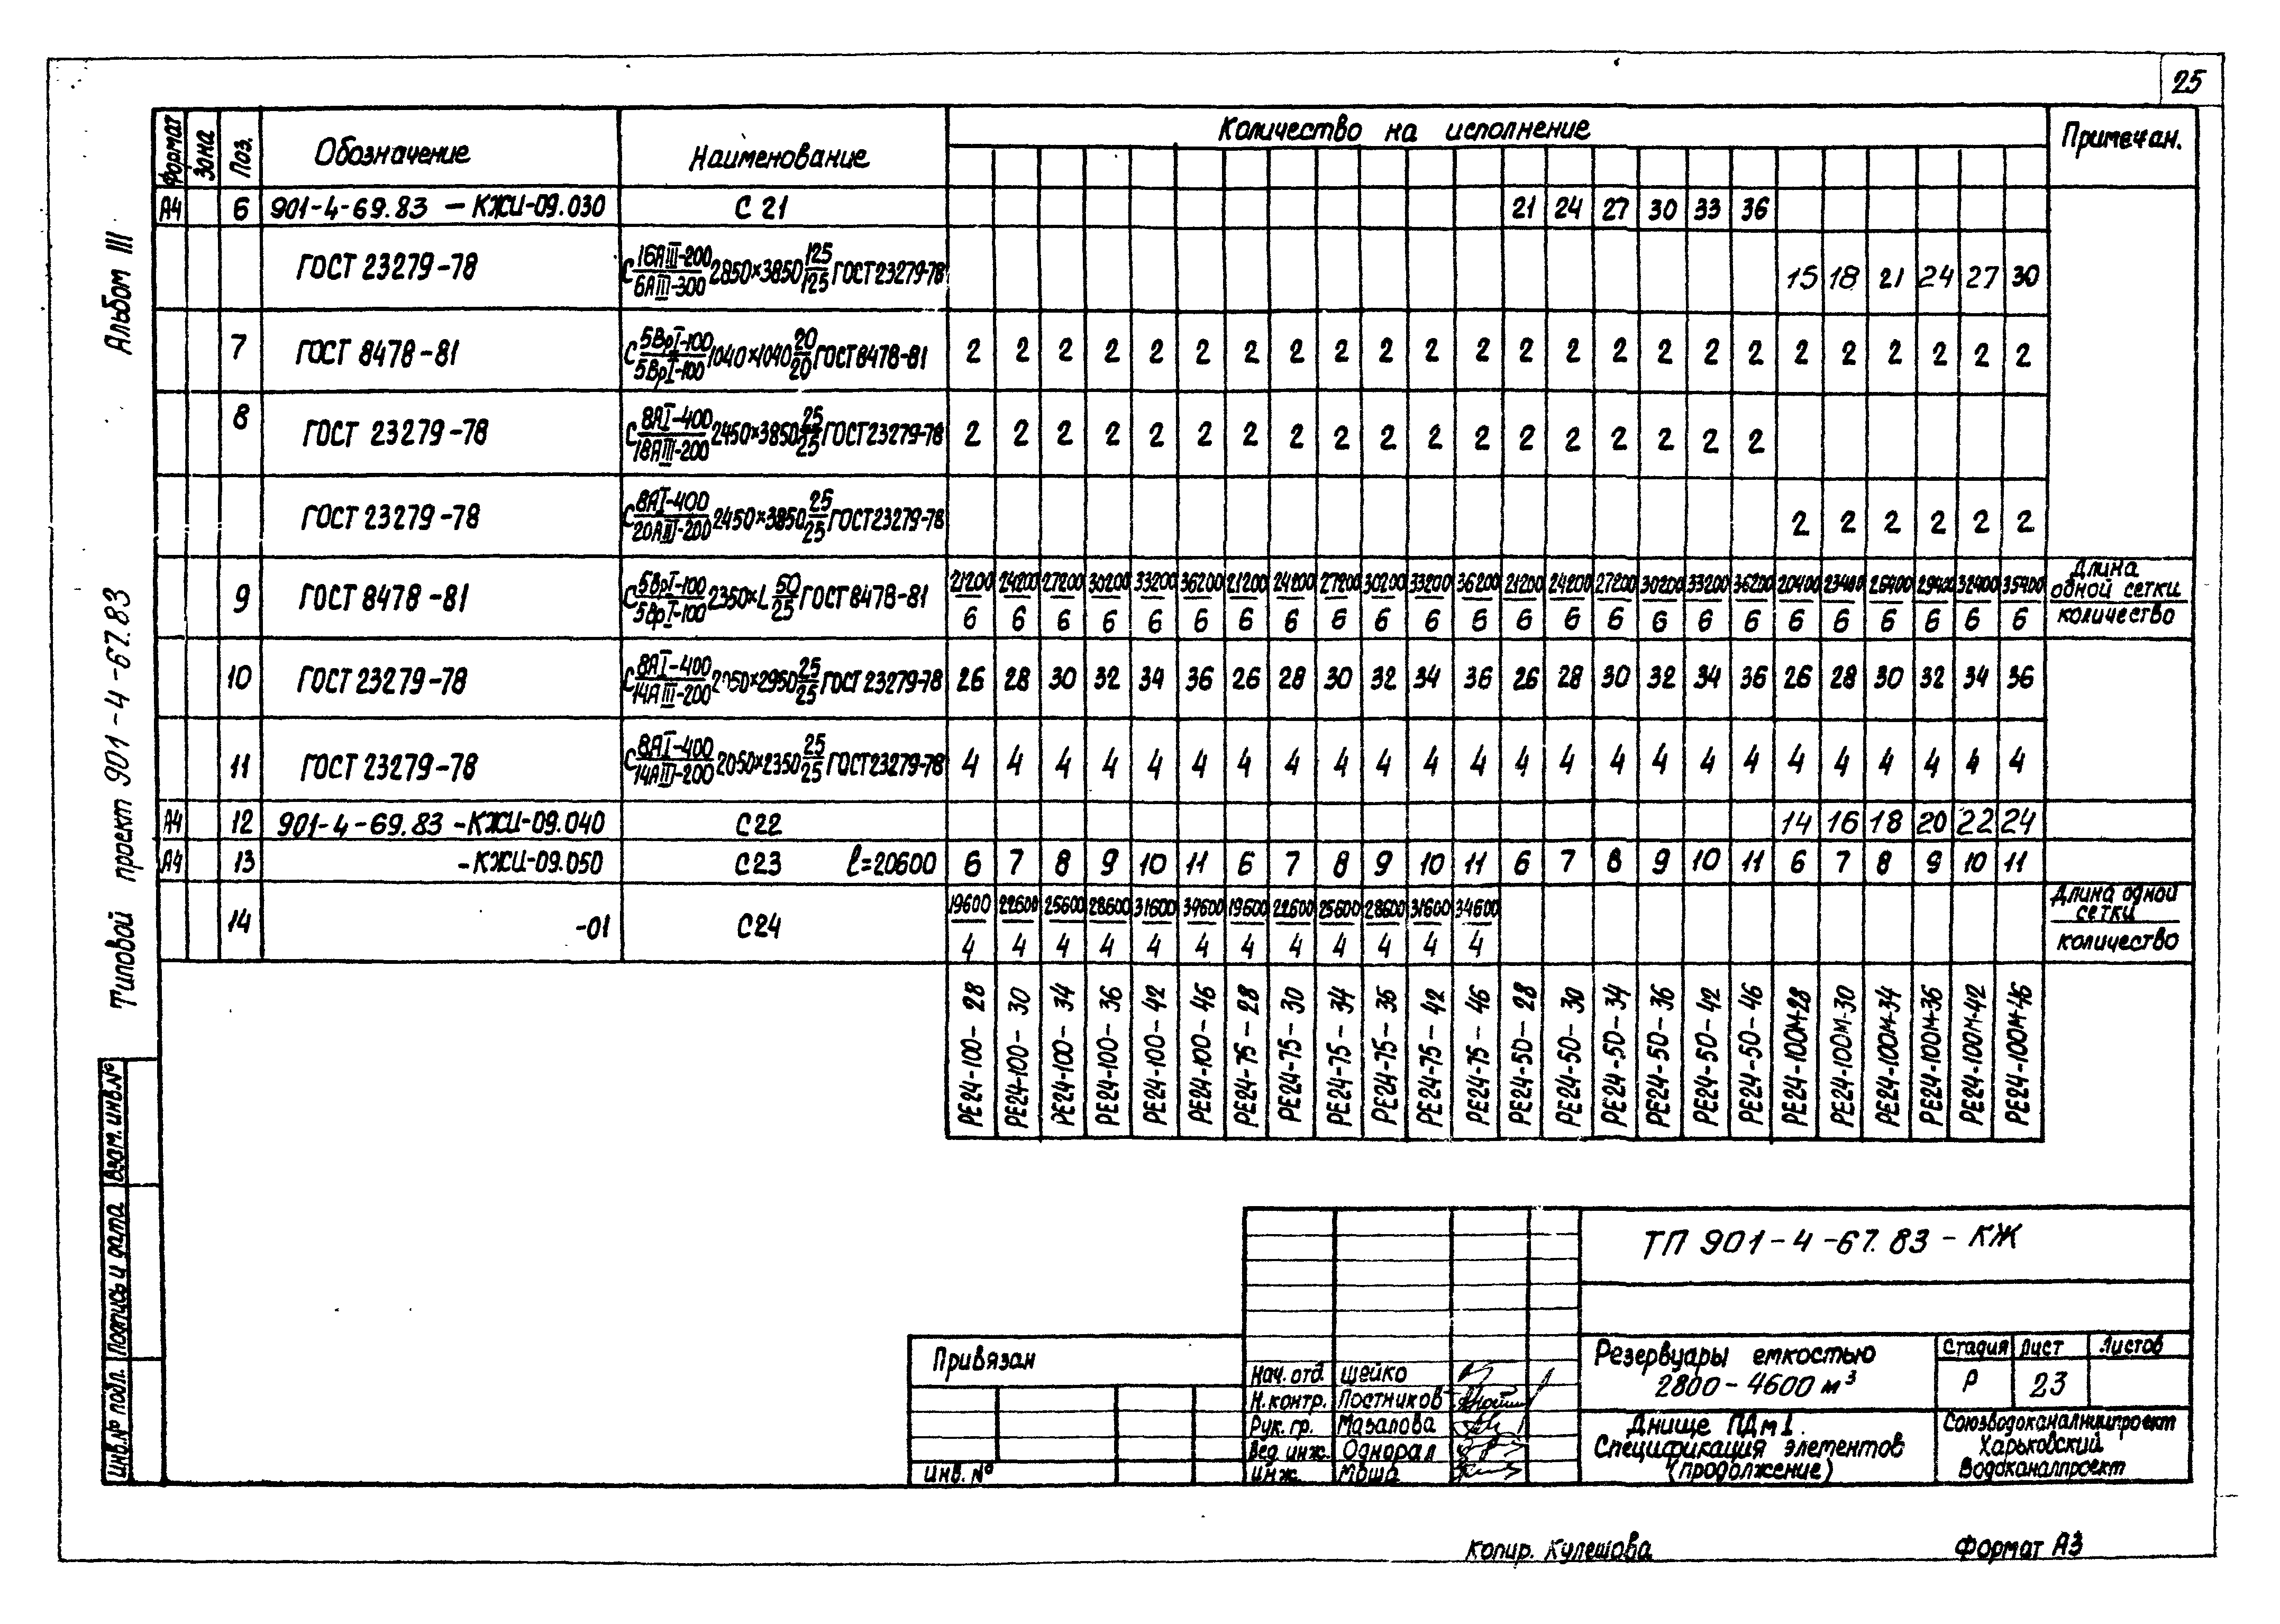 25
Формат Зона Поз. Обозначение Наименование Количество на исполнение Примечан.
А4 6 901-4-69.83 - КЖИ-09.030 С 21 21 24 27 30 33 36
ГОСТ 23279-78 С 16АIII-200/6АIII-300 2850×3850 125/125 ГОСТ 23279-78 15 18 21 24 27 30
7 ГОСТ 8478-81 С 5ВрI-100/5ВрI-100 1040×1040 20/20 ГОСТ 8478-81 2 2 2 2 2 2 2 2 2 2 2 2 2 2 2 2 2 2 2 2 2 2 2 2
8 ГОСТ 23279-78 С 8АI-400/18АIII-200 2450×3850 25/25 ГОСТ 23279-78 2 2 2 2 2 2 2 2 2 2 2 2 2 2 2 2 2 2
ГОСТ 23279-78 С 8АI-400/20АIII-200 2450×3850 25/25 ГОСТ 23279-78 2 2 2 2 2 2
9 ГОСТ 8478-81 С 5ВрI-100/5ВрI-100 2350×L 50/25 ГОСТ 8478-81 21200/6 24200/6 27200/6 30200/6 33200/6 36200/6 21200/6 24200/6 27200/6 30200/6 33200/6 36200/6 21200/6 24200/6 27200/6 30200/6 33200/6 36200/6 20400/6 23400/6 26400/6 29400/6 32400/6 35400/6 Длина одной сетки/количество
10 ГОСТ 23279-78 С 8АI-400/14АIII-200 2050×2950 25/25 ГОСТ 23279-78 26 28 30 32 34 36 26 28 30 32 34 36 26 28 30 32 34 36 26 28 30 32 34 36
11 ГОСТ 23279-78 С 8АI-400/14АIII-200 2050×2350 25/25 ГОСТ 23279-78 4 4 4 4 4 4 4 4 4 4 4 4 4 4 4 4 4 4 4 4 4 4 4 4
А4 12 901-4-69.83 -КЖИ-09.040 С22 14 16 18 20 22 24
А4 13 -КЖИ-09.050 С23 ℓ=20600 6 7 8 9 10 11 6 7 8 9 10 11 6 7 8 9 10 11 6 7 8 9 10 11
14 -01 С24 19600/4 22600/4 25600/4 28600/4 31600/4 34600/4 19600/4 22600/4 25600/4 28600/4 31600/4 34600/4 Длина одной сетки/количество
РЕ24-100-28
РЕ24-100-30
РЕ24-100-34
РЕ24-100-36
РЕ24-100-42
РЕ24-100-46
РЕ24-75-28
РЕ24-75-30
РЕ24-75-34
РЕ24-75-36
РЕ24-75-42
РЕ24-75-46
РЕ24-50-28
РЕ24-50-30
РЕ24-50-34
РЕ24-50-36
РЕ24-50-42
РЕ24-50-46
РЕ24-100М-28
РЕ24-100М-30
РЕ24-100М-34
РЕ24-100М-36
РЕ24-100М-42
РЕ24-100М-46
Типовой проект 901-4-67.83 Альбом III
Инв.№ подл. Подпись и дата Взам.инв.№
ТП 901-4-67.83-КЖ
Привязан
Инв. №
Нач. отд. Шейко
Н.контр. Постников
Рук. гр. Мазалова
Вед. инж. Однорал
Инж. Моша
Резервуары емкостью
2800-4600 м³
Стадия Лист Листов
Р 23
Днище ПДм1.
Спецификация элементов
(продолжение)
Союзводоканалниипроект
Харьковский
Водоканалпроект
копир. Кулешова Формат А3